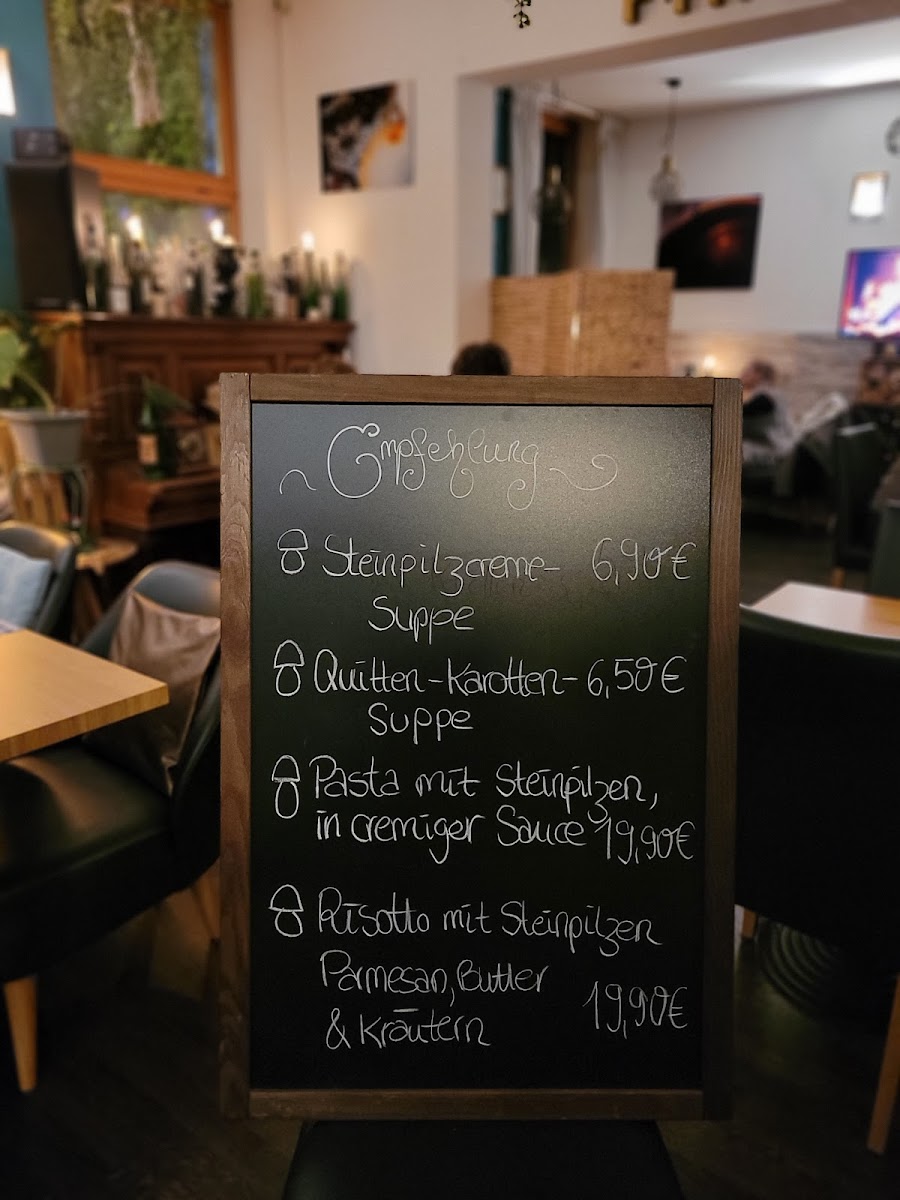 Empfehlung
Steinpilzcreme- 6,90€
Suppe
Quitten-Karotten- 6,50€
Suppe
Pasta mit Steinpilzen,
in cremiger Sauce 19,90€
Risotto mit Steinpilzen
Parmesan, Butter
& Kräutern 19,90€